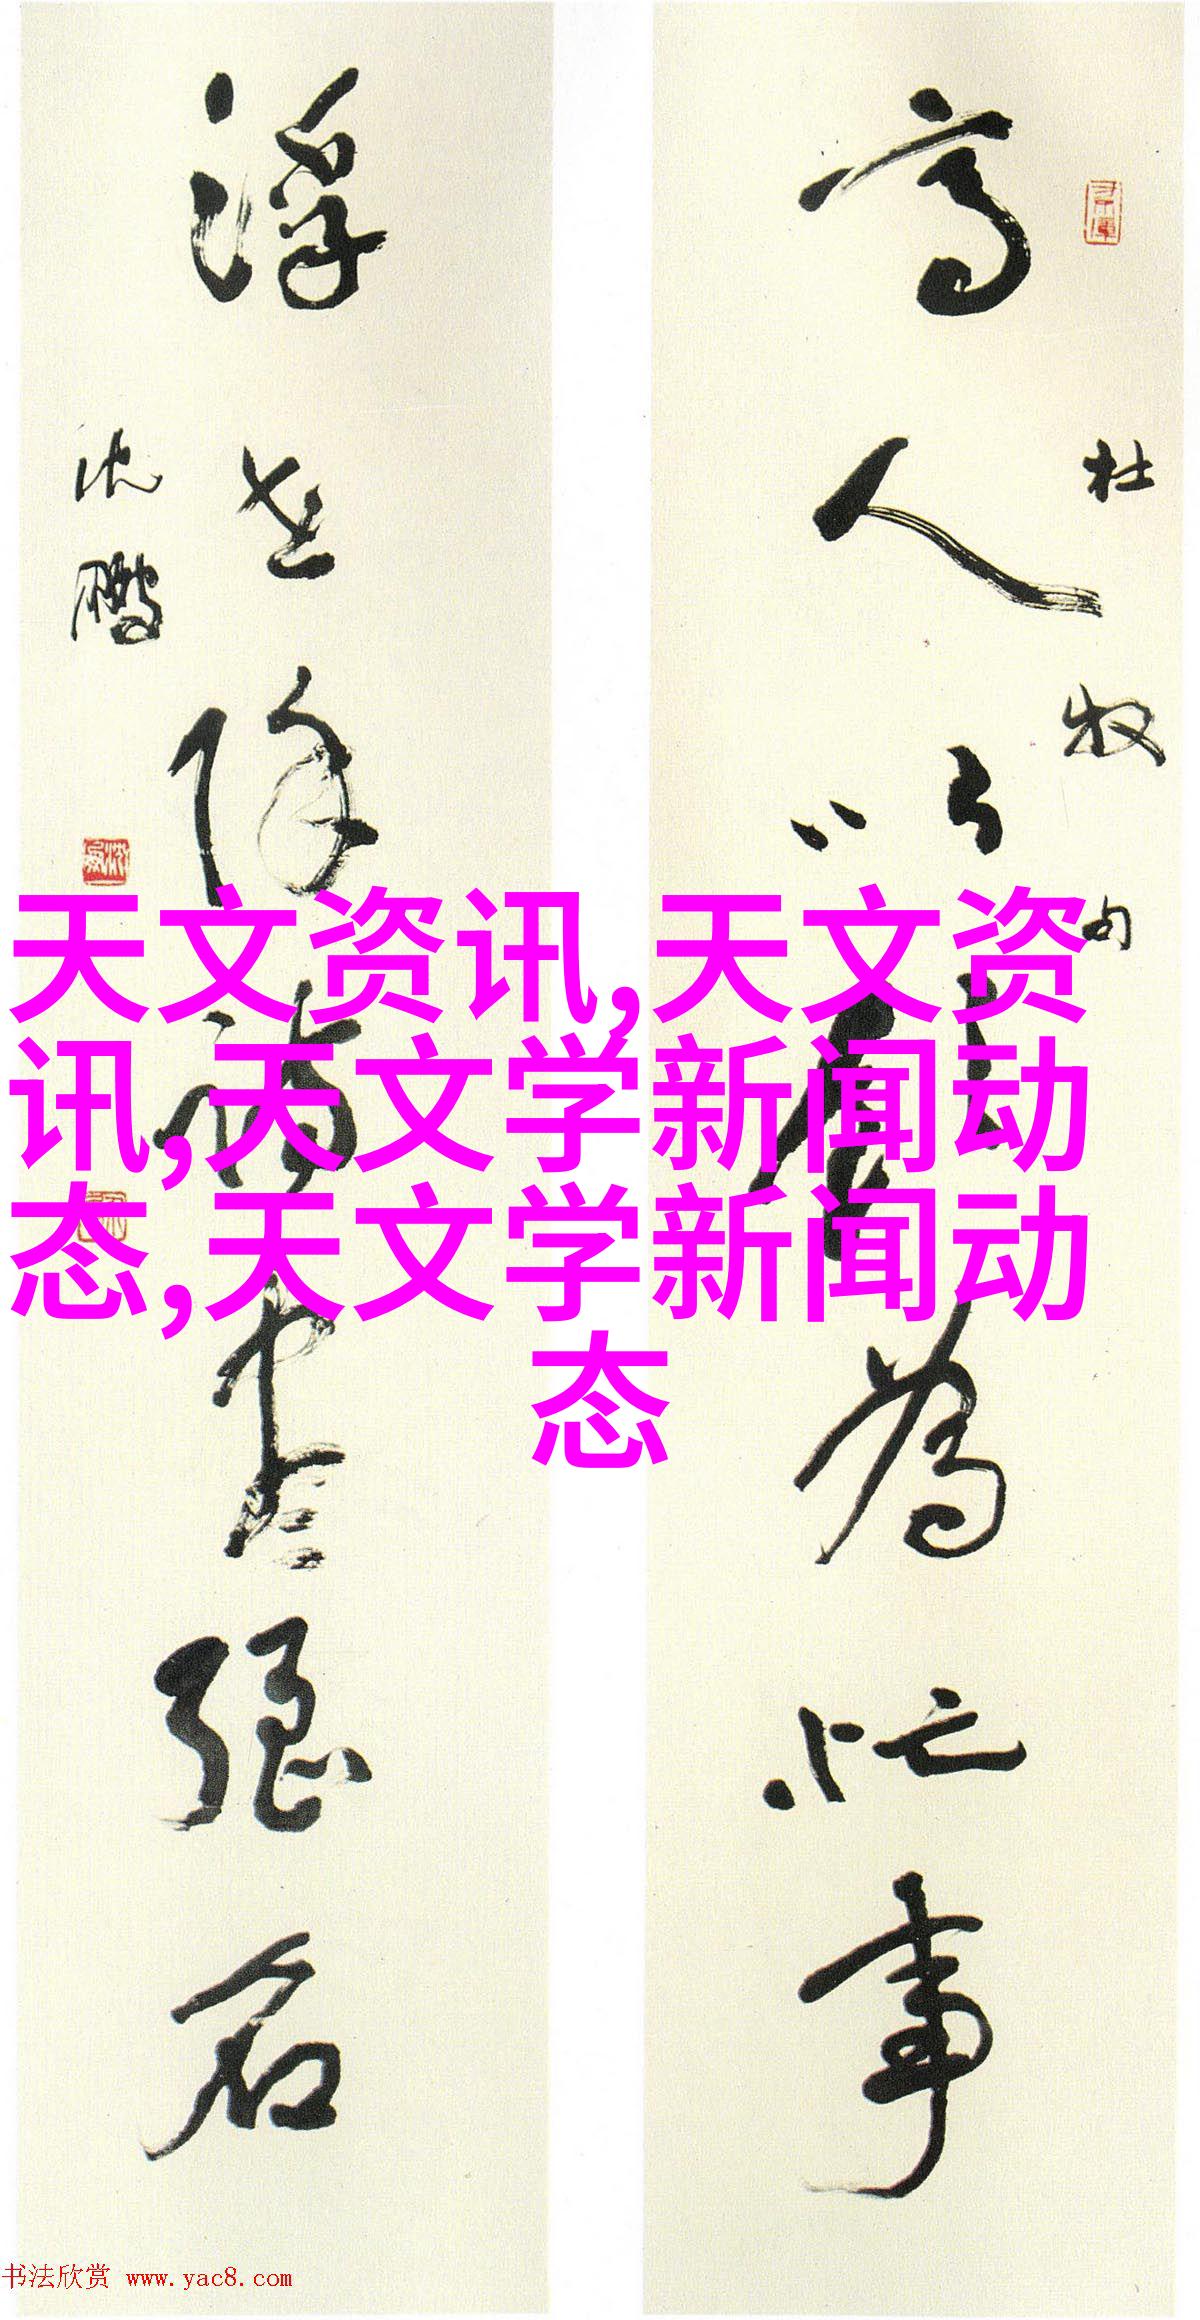 高人以飲為忙事
杜牧句
浮世除詩盡強名
沈鹏
天文资讯,天文资
讯,天文学新闻动
态,天文学新闻动
态
书法欣赏 www.yac8.com